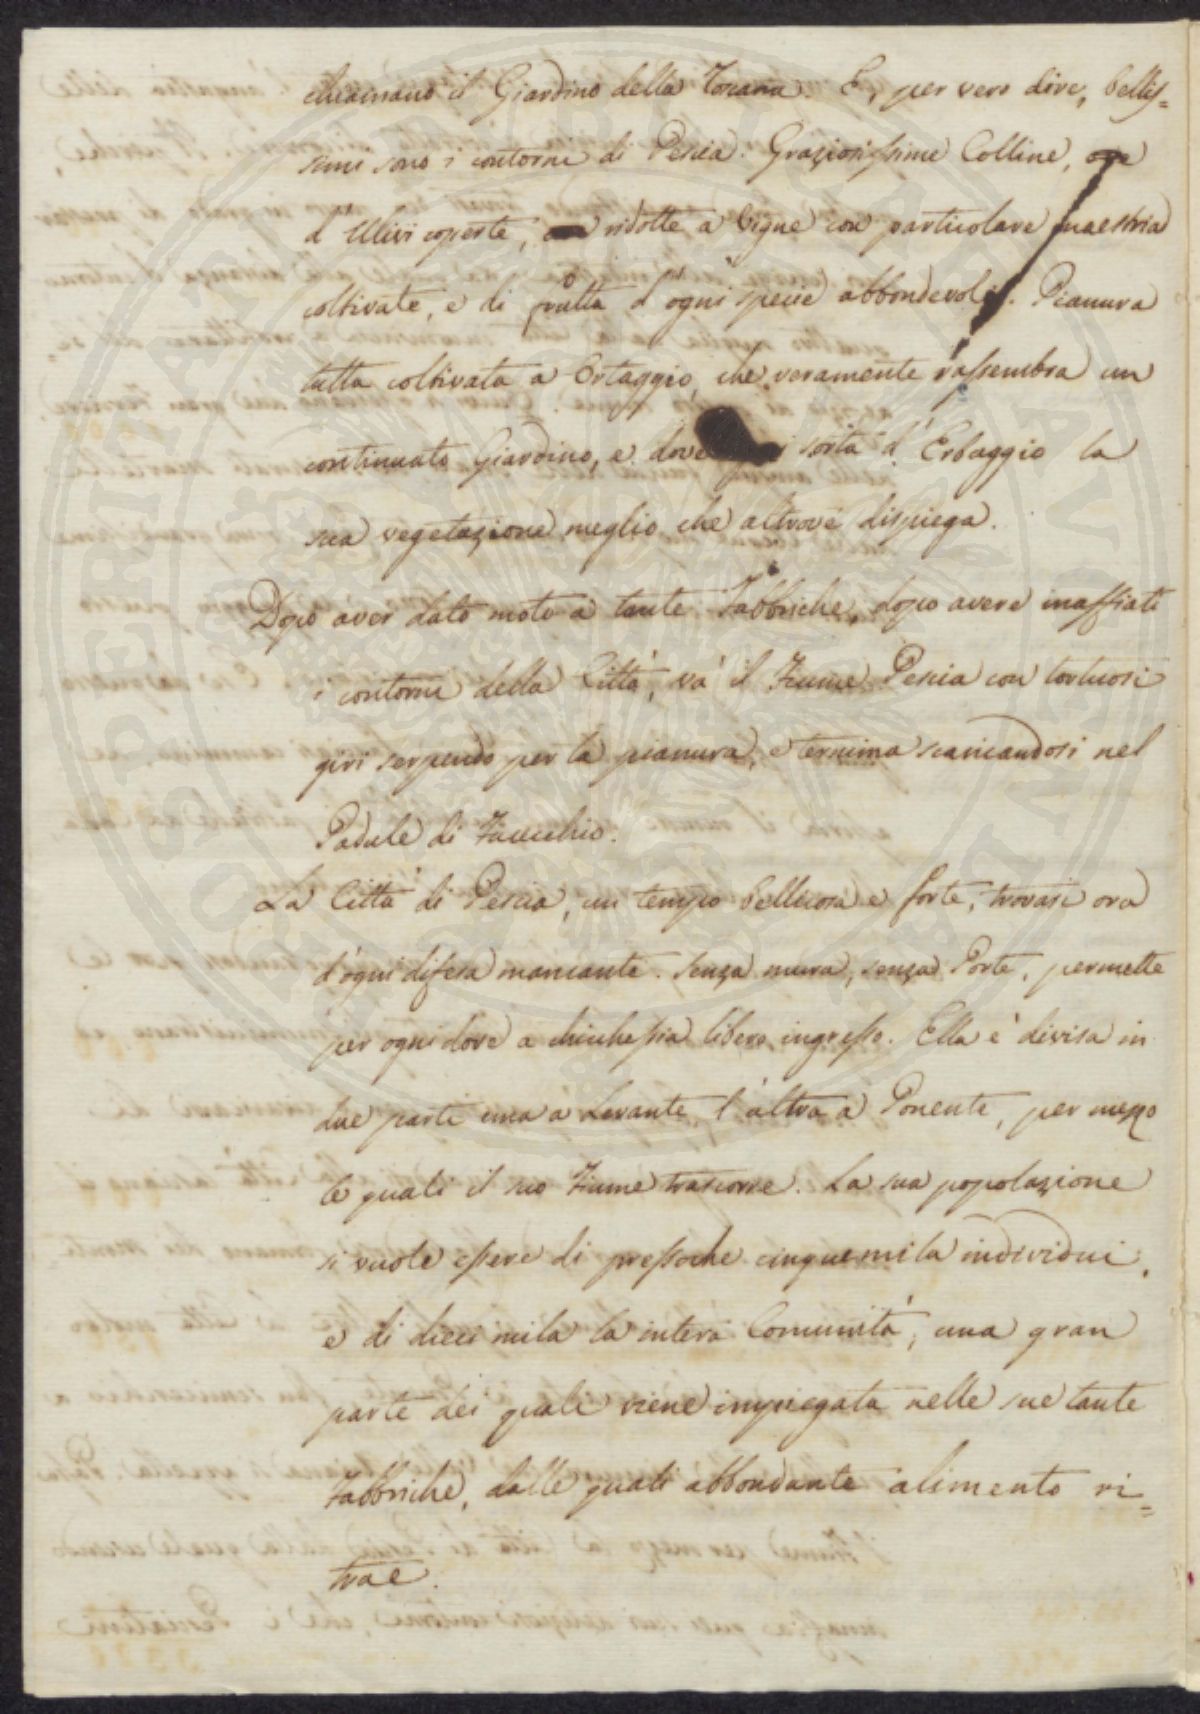 chiamano il Giardino della Toscana. E, per vero dire, bellis=
simi sono i contorni di Pescia. Graziosissime Colline, ove
d'Ulivi coperte, ove ridotte a Vigne con particolare maestria
coltivate, e di frutta d'ogni specie abbondevoli. Pianura
tutta coltivata a Ortaggio, che veramente rassembra un
continuato Giardino, e dove sorta d'Erbaggio la
sua vegetazione meglio che altrove dispiega.
Dopo aver dato moto a tante Fabbriche, dopo avere inaffiati
i contorni della Città, và il Fiume Pescia con tortuosi
giri serpendo per la pianura, e termina scaricandosi nel
Padule di Fucecchio.
La Città di Pescia, un tempo bellicosa e forte, trovasi ora
d'ogni difesa mancante. Senza mura, senza Porte, permette
per ogni dove a chicchessia libero ingresso. Ella è divisa in
due parti una a Levante, l'altra a Ponente, per mezzo
le quali il suo Fiume trascorre. La sua popolazione
si vuole essere di pressoche cinquemila individui,
e di dieci mila la intera Comunità, una gran
parte dei quali viene impiegata nelle sue tante
Fabbriche, dalle quali abbondante alimento ri=
trae.